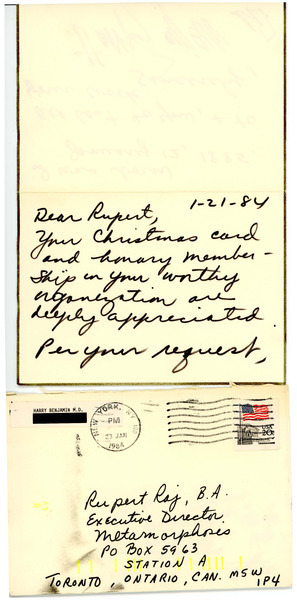 1-21-84
Dear Rupert,
Your Christmas card
and honary member-
ship in your worthy
organization are
deeply appreciated.
Per your request,
HARRY BENJAMIN M.D.
NEW YORK, NY
PM
23 JAN
1984
USA 20c
Rupert Raj, B.A.
Executive Director
Metamorphoses
PO Box 5963
STATION A
TORONTO, ONTARIO, CAN. M5W
1P4